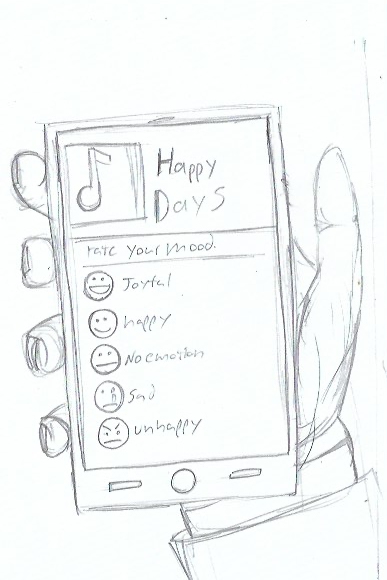 Happy
Days
rate your mood.
Joyful
happy
No emotion
Sad
unhappy